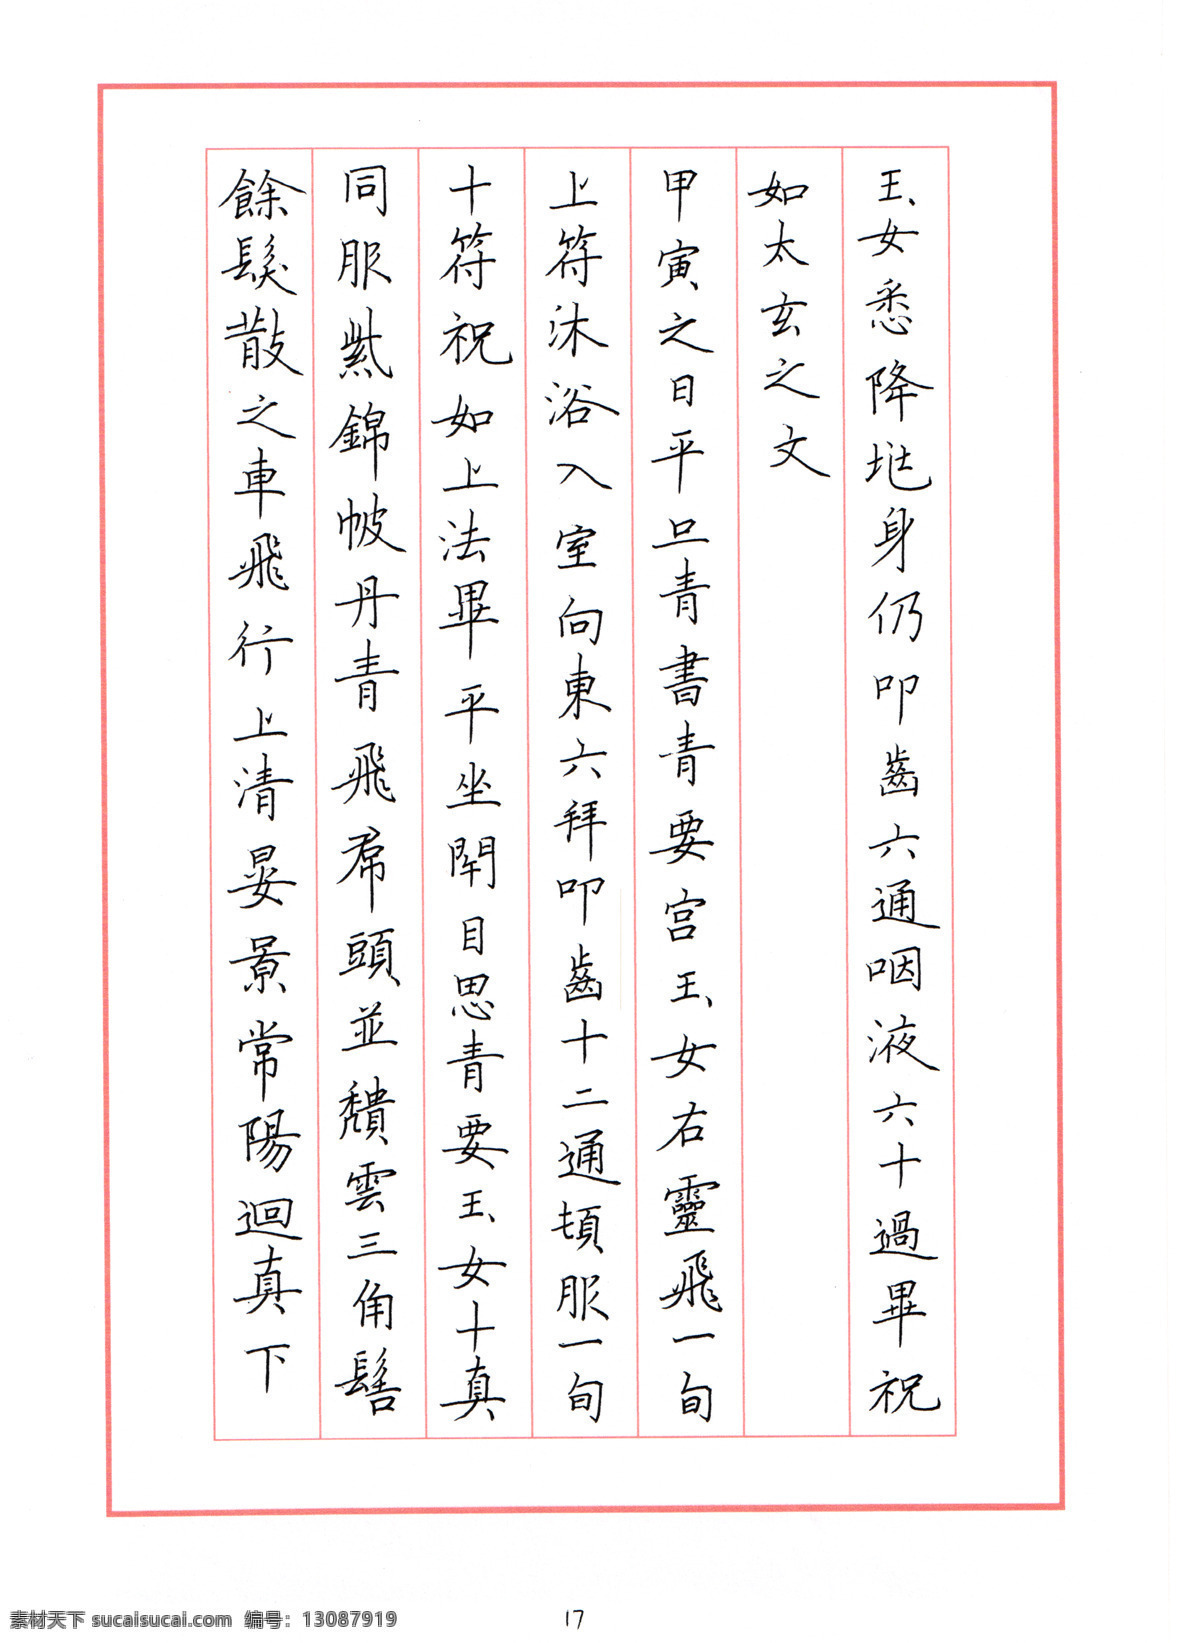 玉女悉降地身仍叩齒六通咽液六十過畢祝
如太玄之文
甲寅之日平旦青書青要宮玉女右靈飛一旬
上符沐浴入室向東六拜叩齒十二通頓服一旬
十符祝如上法畢平坐閇目思青要玉女十真
同服紫錦帔丹青飛帬頭並頹雲三角髻
餘髮散之車飛行上清晏景常陽迴真下
17
素材天下 sucaisucai.com 编号：13087919